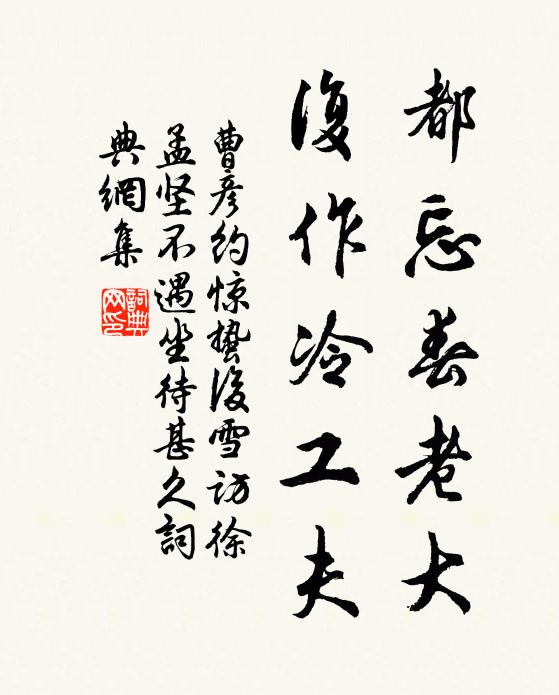 都忘春老大
復作冷工夫
曹彦約惊蟄後雪訪徐
孟坚不遇坐待甚久詞
典網集
詞典網印